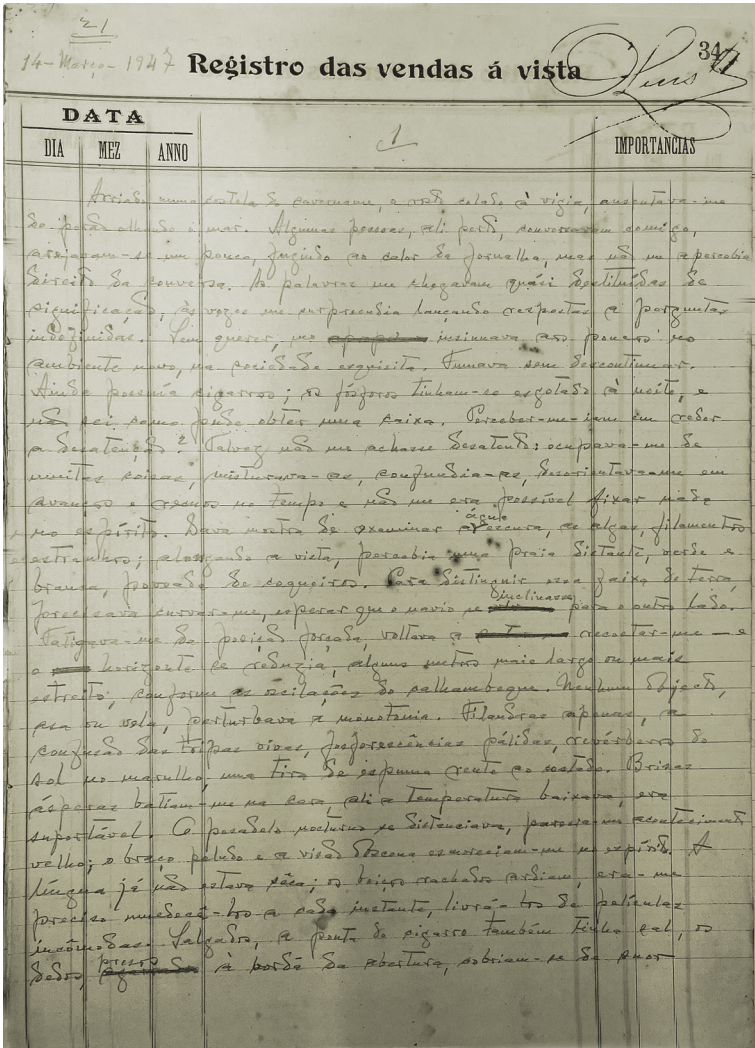 21
14-Março-1947
Registro das vendas á vista
34
DATA
DIA MEZ ANNO
1
IMPORTANCIAS
Arriado numa costela do cavername, o rosto colado à vigia, ausentava-me
do porão olhando o mar. Algumas pessoas, ali perto, conversavam comigo,
arejavam-se um pouco, fugindo ao calor da fornalha, mas não me apercebia
direito da conversa. As palavras me chegavam quási destituídas de
significação; às vezes me surpreendia lançando respostas a perguntas
indefinidas. Sem querer, me insinuava aos poucos no
ambiente novo, na sociedade esquisita. Fumava sem descontinuar.
Ainda possuía cigarros; os fósforos tinham-se esgotado à noite, e
não sei como pude obter uma caixa. Perceber-me-iam em redor
a desatenção? Talvez não me achasse desatento: ocupava-me de
muitas coisas, misturava-as, confundia-as, desorientava-me em
avanços e recuos no tempo e não me era possível fixar nada
no espírito. Dava mostra de examinar a água escura, as algas, filamentos
estranhos; alongando a vista, percebia uma praia distante, verde e
branca, povoada de coqueiros. Para distinguir essa faixa de terra,
precisava curvar-me, esperar que o navio se inclinasse para o outro lado.
Fatigava-me da posição forçada, voltava a recostar-me — e
o horizonte se reduzia, alguns metros mais largo ou mais
estreito, conforme as oscilações do calhambeque. Nenhum objecto,
asa ou vela, perturbava a monotonia. Filandras apenas, a
confusão das tripas vivas, fosforescências pálidas, revérbero do
sol no marulho, uma tira de espuma rente ao costado. Brisas
ásperas batiam-me na cara, ali a temperatura baixava, era
suportável. O pesadelo nocturno se distanciava, parecia um acontecimento
velho; o braço peludo e a visão obscena esmoreciam-me no espírito. A
língua já não estava sêca; os beiços rachados ardiam, era-me
preciso umedecê-los a cada instante, livrá-los de películas
incômodas. Salgados, a ponta do cigarro também tinha sal, os
dedos, presos à borda da abertura, cobriam-se de suor